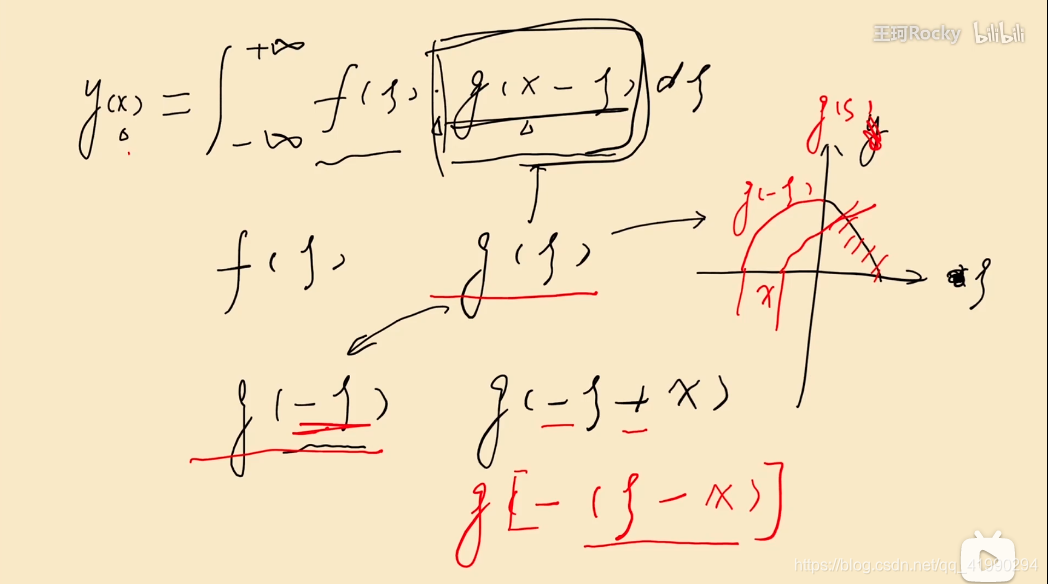 王珂Rocky bilibili
y(x) = ∫_{-∞}^{+∞} f(ξ) · g(x - ξ) dξ
g(ξ) y
f(ξ) g(ξ)
g(-ξ)
x ξ
g(-ξ) g(-ξ + x)
g[-(ξ - x)]
https://blog.csdn.net/qq_41990294